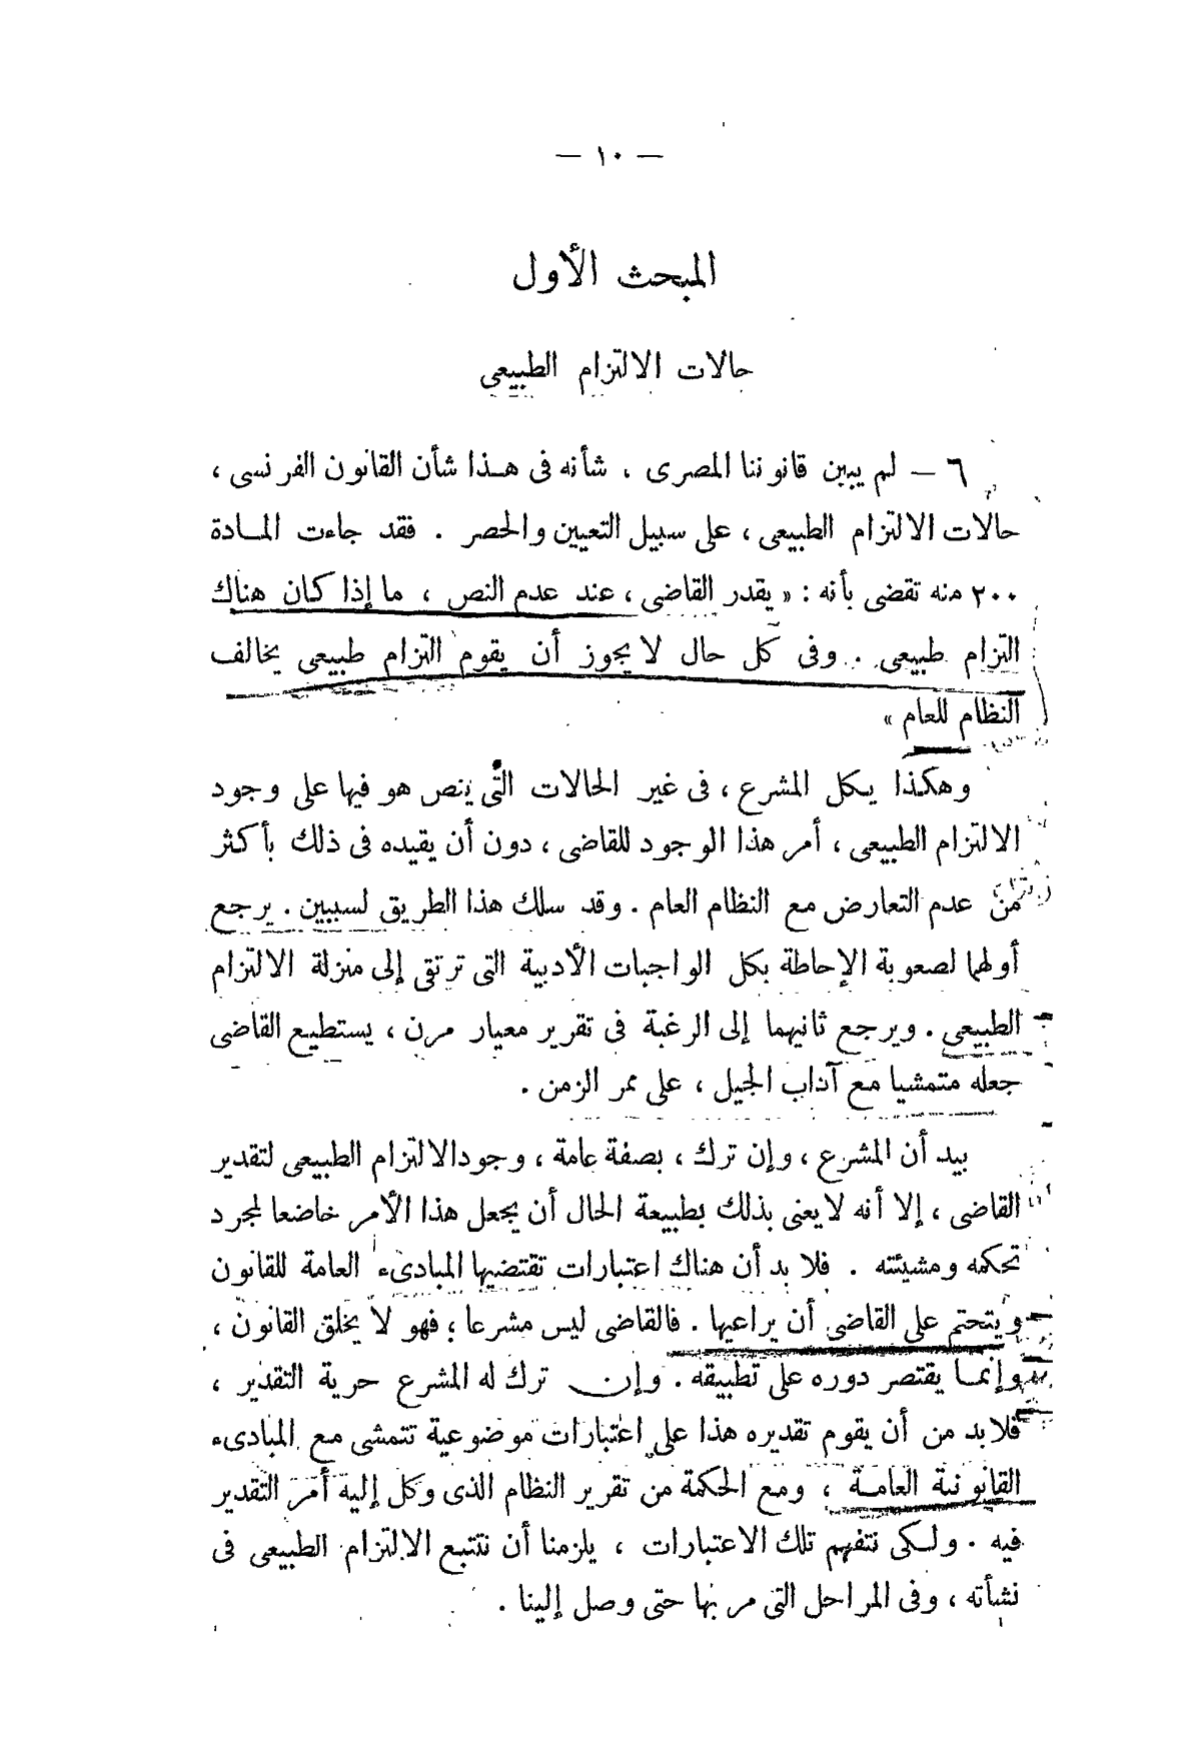 — ١٠ —
المبحث الأول
حالات الالتزام الطبيعى
٦ — لم يبين قانوننا المصرى ، شأنه فى هـذا شأن القانون الفرنسى ،
حالات الالتزام الطبيعى ، على سبيل التعيين والحصر . فقد جاءت المـادة
٢٠٠ منه تقضى بأنه : « يقدر القاضى ، عند عدم النص ، ما إذا كان هناك
التزام طبيعى . وفى كل حال لا يجوز أن يقوم التزام طبيعى يخالف
النظام للعام »
وهكذا يكل المشرع ، فى غير الحالات التى ينص هو فيها على وجود
الالتزام الطبيعى ، أمر هذا الوجود للقاضى ، دون أن يقيده فى ذلك بأكثر
من عدم التعارض مع النظام العام . وقد سلك هذا الطريق لسببين . يرجع
أولهما لصعوبة الإحاطة بكل الواجبات الأدبية التى ترتقى إلى منزلة الالتزام
الطبيعى . ويرجع ثانيهما إلى الرغبة فى تقرير معيار مرن ، يستطيع القاضى
جعله متمشيا مع آداب الجيل ، على ممر الزمن .
بيد أن المشرع ، وإن ترك ، بصفة عامة ، وجود الالتزام الطبيعى لتقدير
القاضى ، إلا أنه لا يعنى بذلك بطبيعة الحال أن يجعل هذا الأمر خاضعا لمجرد
تحكمه ومشيئته . فلا بد أن هناك اعتبارات تقتضيها المبادىء العامة للقانون
ويتحتم على القاضى أن يراعيها . فالقاضى ليس مشرعا ؛ فهو لا يخلق القانون ،
وإنمـا يقتصر دوره على تطبيقه . وإن ترك له المشرع حرية التقدير ،
فلا بد من أن يقوم تقديره هذا على اعتبارات موضوعية تتمشى مع المبادىء
القانونية العامـة ، ومع الحكمة من تقرير النظام الذى وكل إليه أمر التقدير
فيه . ولـكى نتفهم تلك الاعتبارات ، يلزمنا أن نتتبع الالتزام الطبيعى فى
نشأته ، وفى المراحل التى مر بها حتى وصل إلينا .